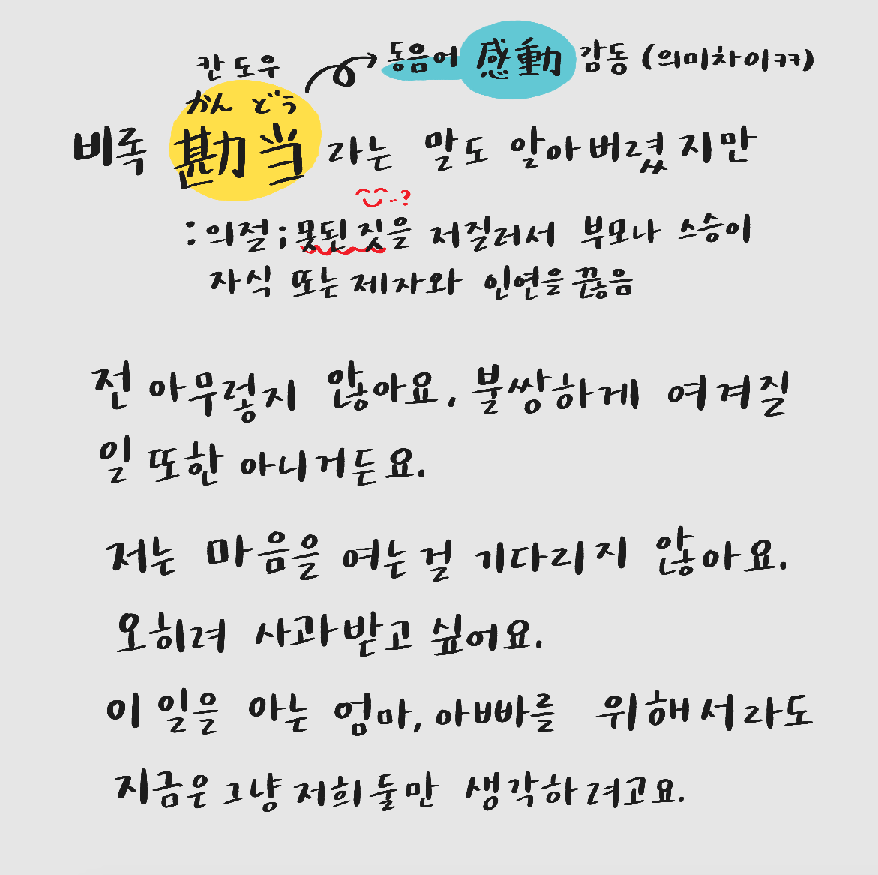 칸도우 동음어 感動 감동 (의미차이ㅋㅋ)
かんどう
비록 勘当 라는 말도 알아버렸지만
:의절; 못된 짓을 저질러서 부모나 스승이
자식 또는 제자와 인연을 끊음
전 아무렇지 않아요. 불쌍하게 여겨질
일 또한 아니거든요.
저는 마음을 여는걸 기다리지 않아요.
오히려 사과받고 싶어요.
이 일을 아는 엄마, 아빠를 위해서라도
지금은 그냥 저희 둘만 생각하려고요.